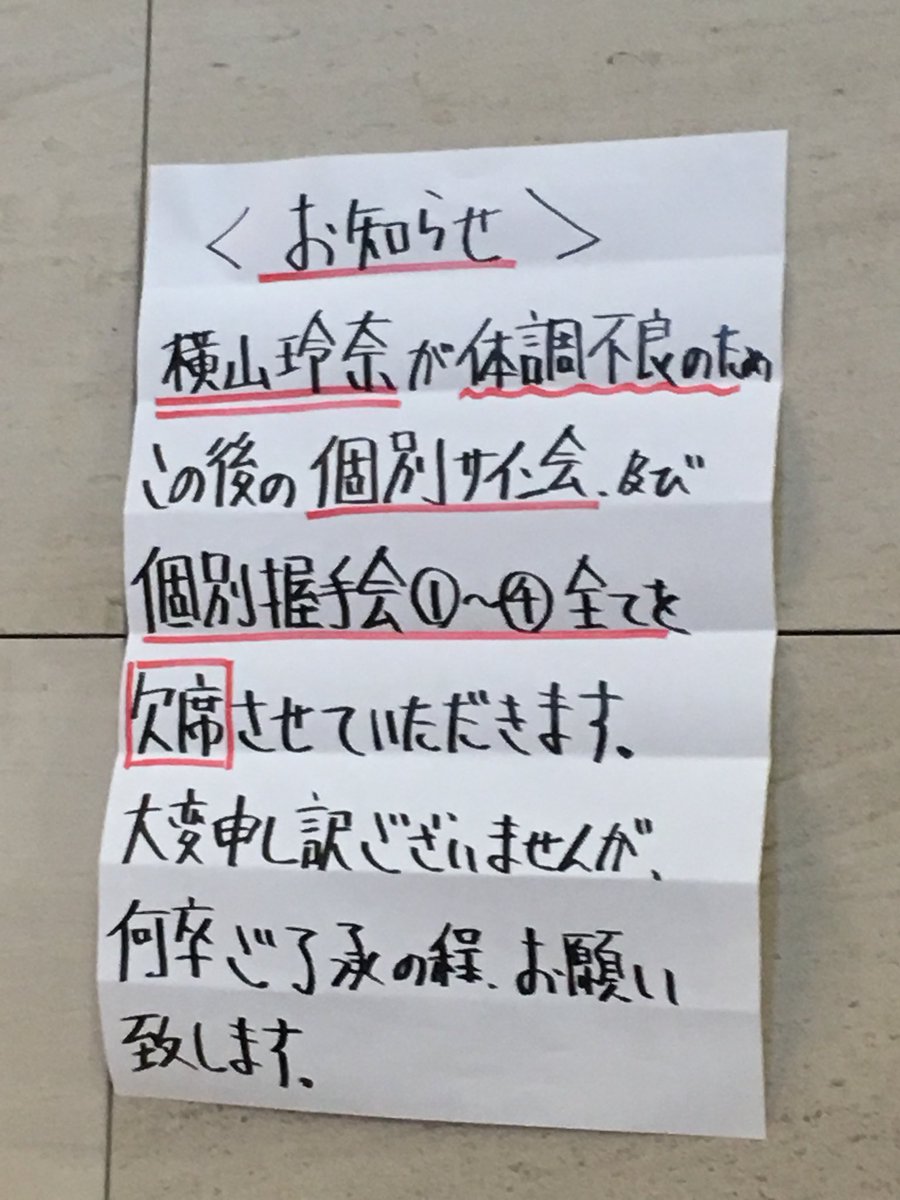 〈お知らせ〉
横山玲奈が体調不良のため
この後の個別サイン会、及び
個別握手会①〜④全てを
欠席させていただきます。
大変申し訳ございませんが、
何卒ご了承の程、お願い
致します。